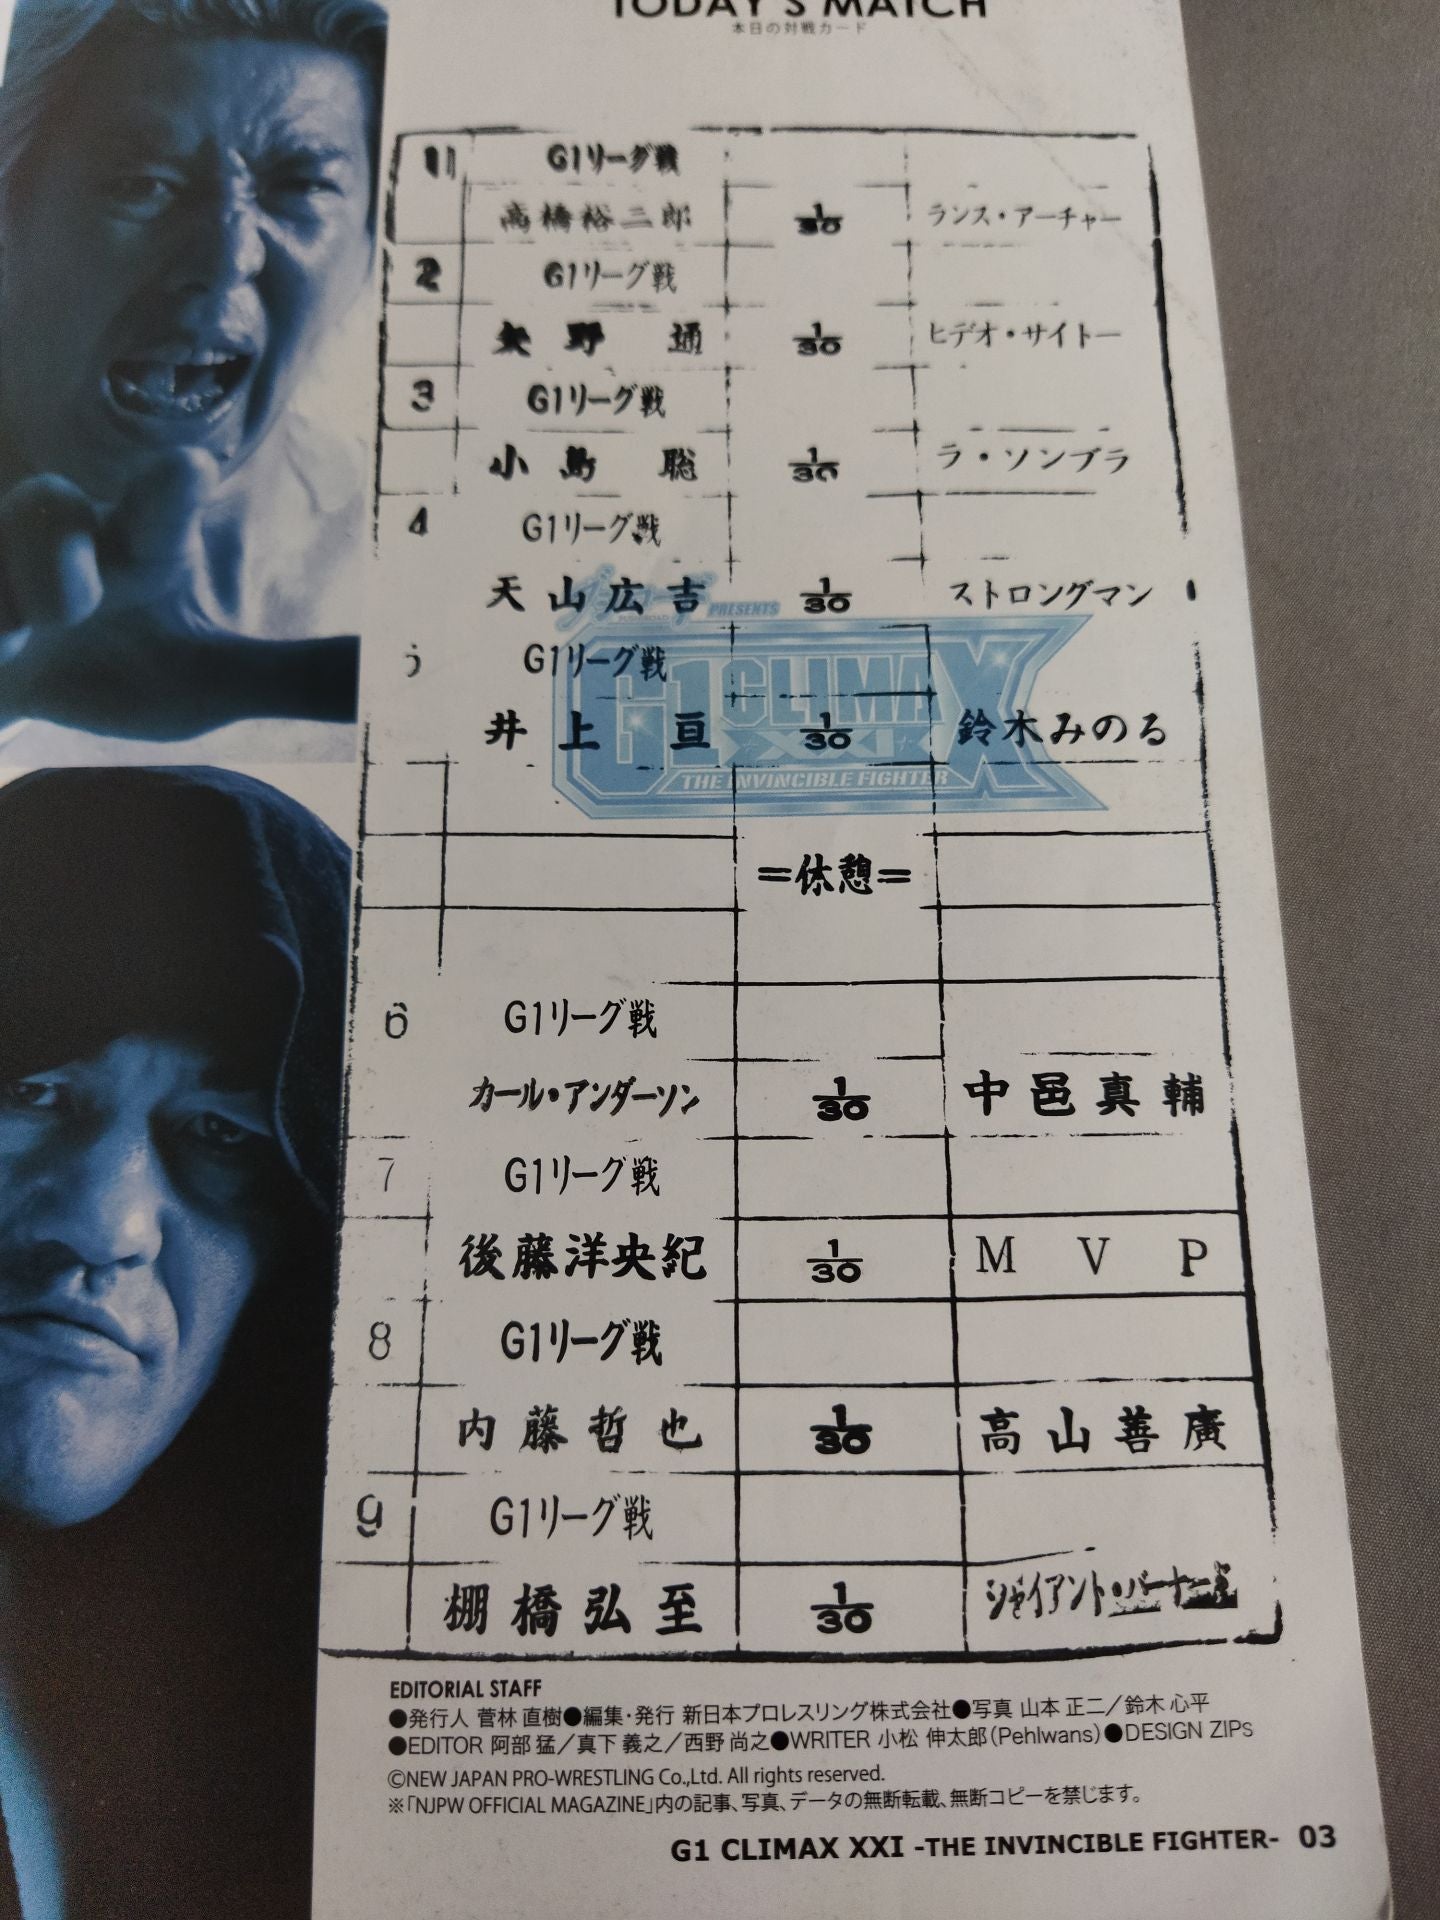 TODAY'S MATCH
本日の対戦カード
1 G1リーグ戦
高橋裕二郎 1/30 ランス・アーチャー
2 G1リーグ戦
矢野 通 1/30 ヒデオ・サイトー
3 G1リーグ戦
小島 聡 1/30 ラ・ソンブラ
4 G1リーグ戦
天山広吉 1/30 ストロングマン
ブシロード PRESENTS
BUSHIROAD
5 G1リーグ戦
G1 CLIMAX
XXI
井上 亘 1/30 鈴木みのる
THE INVINCIBLE FIGHTER
=休憩=
6 G1リーグ戦
カール・アンダーソン 1/30 中邑真輔
7 G1リーグ戦
後藤洋央紀 1/30 M V P
8 G1リーグ戦
内藤哲也 1/30 高山善廣
9 G1リーグ戦
棚橋弘至 1/30 ジャイアント・バーナード
EDITORIAL STAFF
●発行人 菅林 直樹●編集・発行 新日本プロレスリング株式会社●写真 山本 正二／鈴木 心平
●EDITOR 阿部 猛／真下 義之／西野 尚之●WRITER 小松 伸太郎（Pehlwans）●DESIGN ZIPs
©NEW JAPAN PRO-WRESTLING Co.,Ltd. All rights reserved.
※「NJPW OFFICIAL MAGAZINE」内の記事、写真、データの無断転載、無断コピーを禁じます。
G1 CLIMAX XXI -THE INVINCIBLE FIGHTER- 03